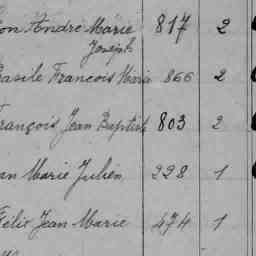 André Marie 817 2
Joseph
Basile François Maria 866 2
François Jean Baptiste 803 2
Marie Julien 228 1
Félix Jean Marie 474 1